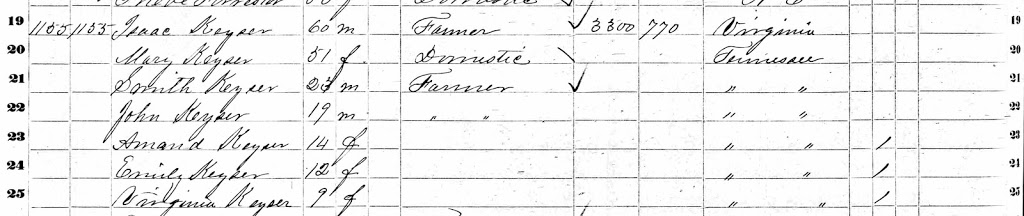 Domestic
19 1155 1155 Isaac Keyser 60 m Farmer 3300 770 Virginia 19
20 Mary Keyser 51 f Domestic Tennessee 20
21 Smith Keyser 23 m Farmer " " 21
22 John Keyser 19 m " " " " 22
23 Amand Keyser 14 f " " / 23
24 Emily Keyser 12 f " " / 24
25 Virginia Keyser 9 f " " / 25